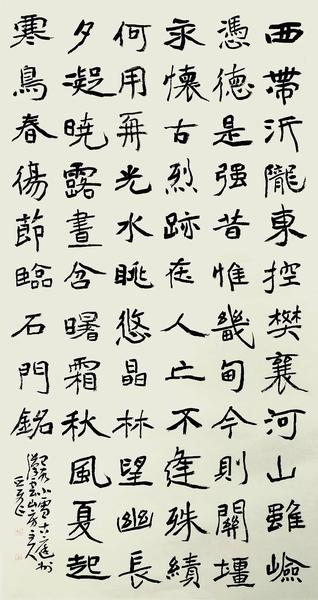 西帶沂隴東控樊襄河山雖嶮
憑德是强昔惟畿甸今則關壃
永懷古烈跡在人亡不逢殊績
何用再光水眺悠晶林望幽長
夕凝曉露晝含曙霜秋風夏起
寒鳥春傷節臨石門銘